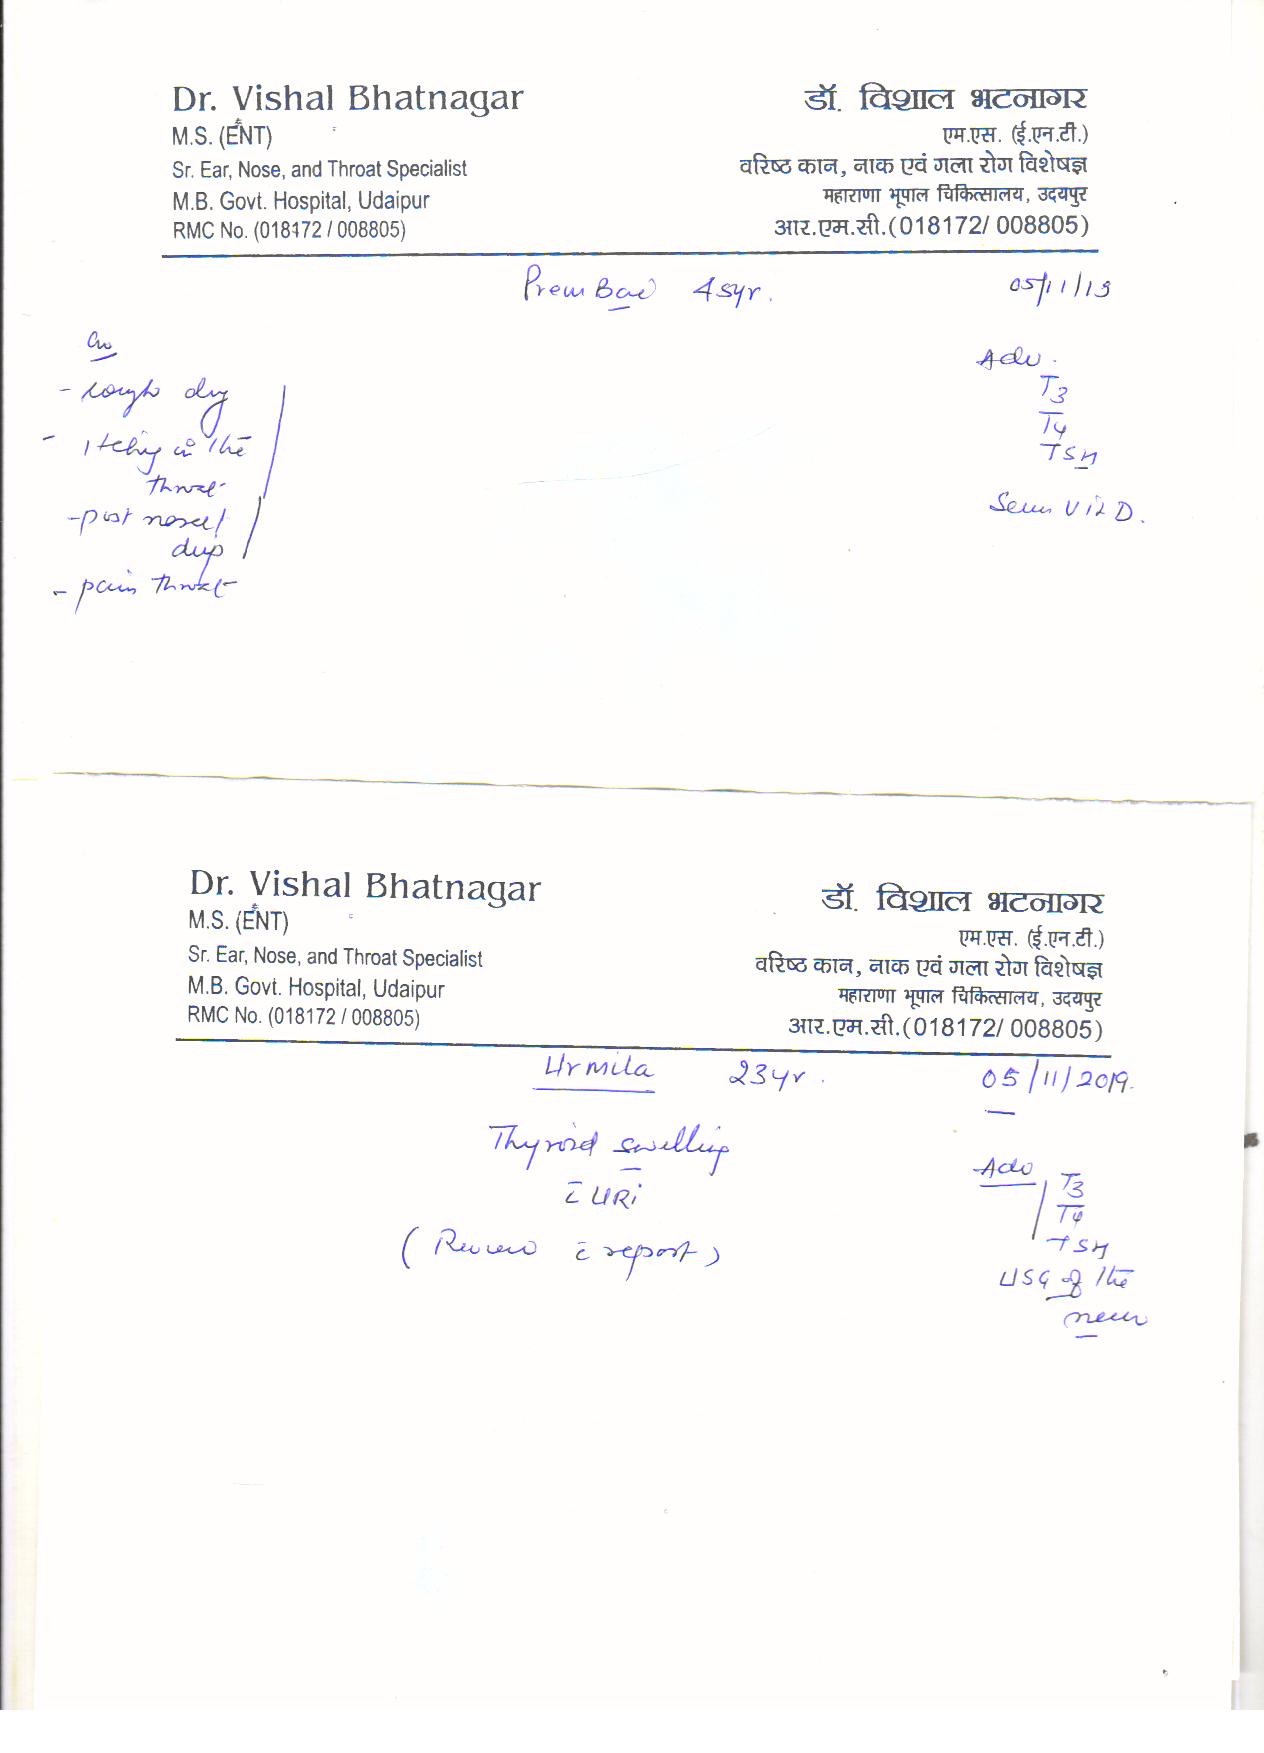 Dr. Vishal Bhatnagar
M.S. (ENT)
Sr. Ear, Nose, and Throat Specialist
M.B. Govt. Hospital, Udaipur
RMC No. (018172 / 008805)
डॉ. विशाल भटनागर
एम.एस. (ई.एन.टी.)
वरिष्ठ कान, नाक एवं गला रोग विशेषज्ञ
महाराणा भूपाल चिकित्सालय, उदयपुर
आर.एम.सी.(018172/ 008805)
Prem Bai 45yr.
05/11/19
- cough dry
- itching in the
throat
- post nasal
drip
- pain throat
Adv.
T3
T4
TSH
Serum Vit D.
Dr. Vishal Bhatnagar
M.S. (ENT)
Sr. Ear, Nose, and Throat Specialist
M.B. Govt. Hospital, Udaipur
RMC No. (018172 / 008805)
डॉ. विशाल भटनागर
एम.एस. (ई.एन.टी.)
वरिष्ठ कान, नाक एवं गला रोग विशेषज्ञ
महाराणा भूपाल चिकित्सालय, उदयपुर
आर.एम.सी.(018172/ 008805)
Urmila 23yr.
05/11/2019.
Thyroid swelling
c̄ URI
(Review c̄ report)
Adv
T3
T4
TSH
USG of the
neck